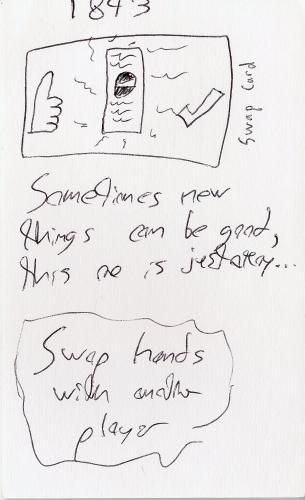 1843
Swap Card
Sometimes new
things can be good,
this one is
Swap hands
with another
player